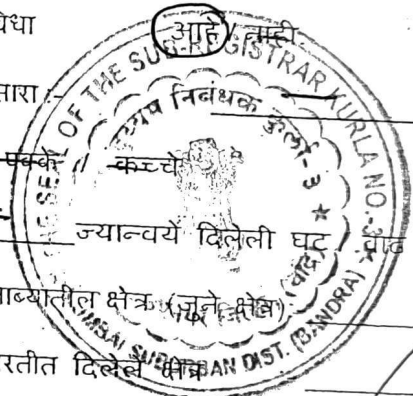 वेधा आहे / नाही
सारा :-
पक्के / कच्चे
ज्यान्वये दिलेली घट / वाढ
ाब्यातील क्षेत्र (जुने क्षेत्र)
रतीत दिलेले क्षेत्र
THE SEAL OF THE SUB-REGISTRAR KURLA NO.-3
दुय्यम निबंधक कुर्ला-३
(बांद्रा)
MUMBAI SUBURBAN DIST. (BANDRA)